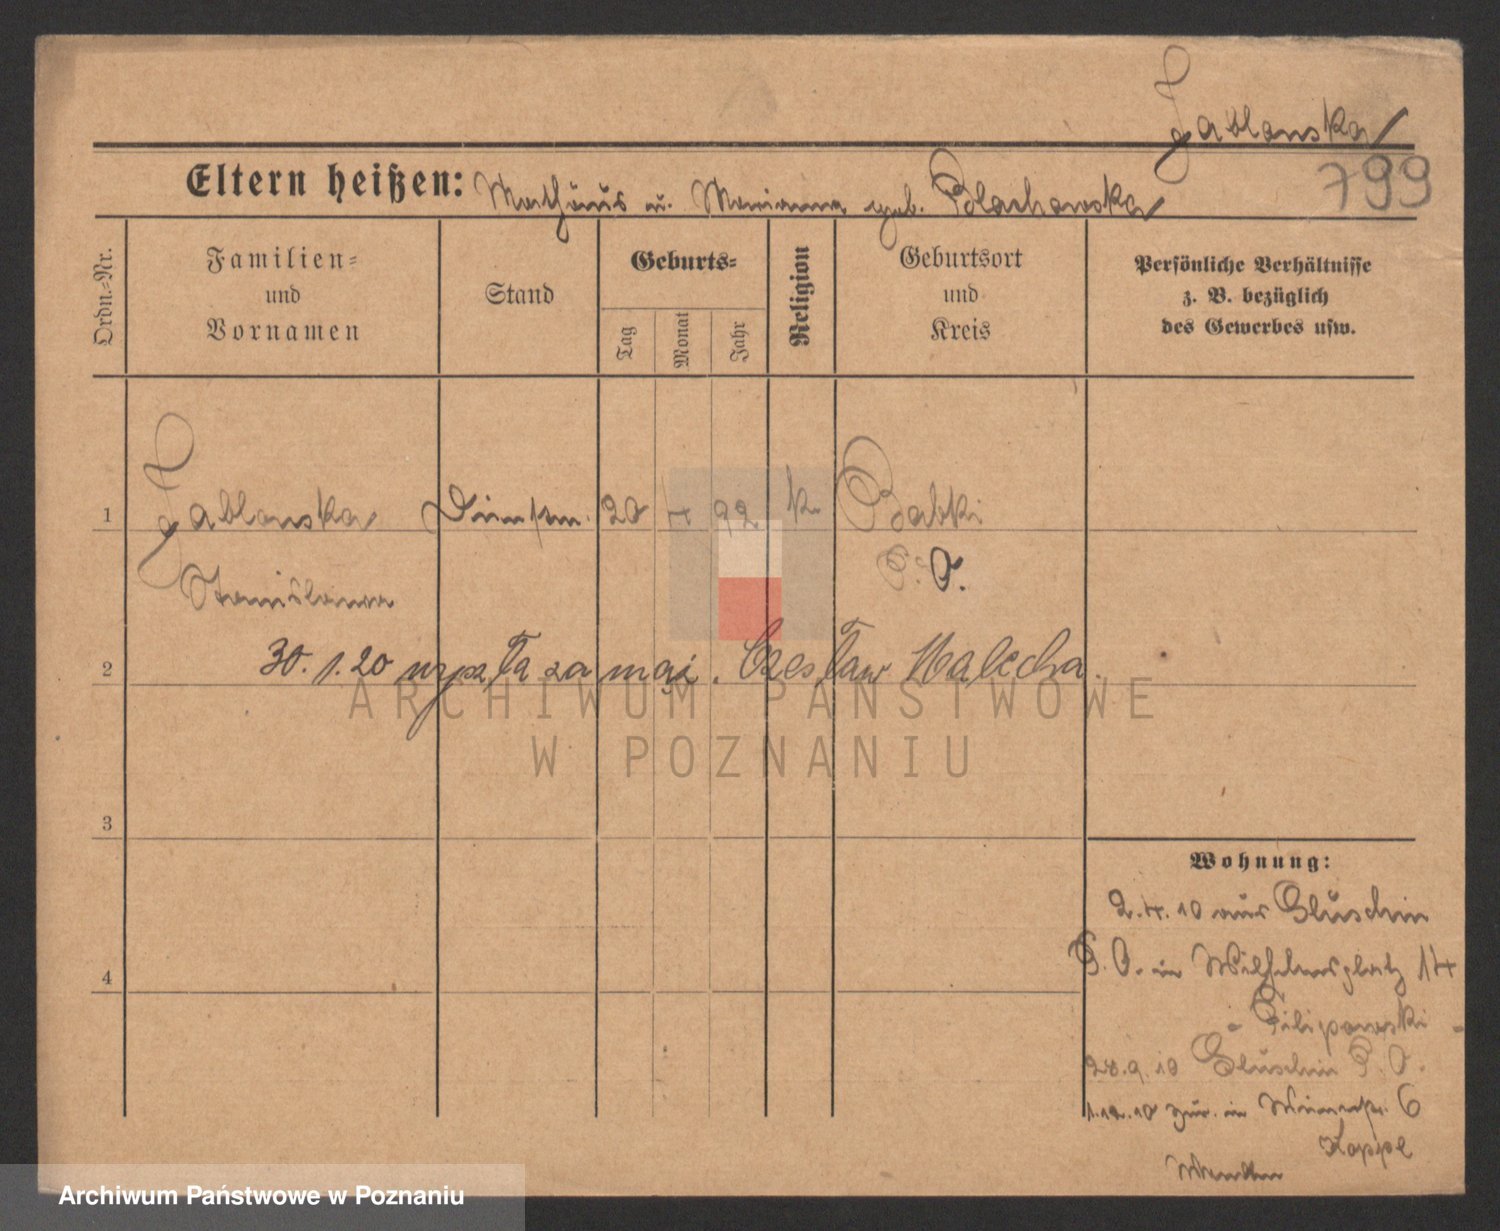 Jablonska
799
Eltern heißen: Mathäus u. Marianna geb.
Ordn.-Nr.
Familien-
und
Vornamen
Stand
Geburts-
Tag
Monat
Jahr
Religion
Geburtsort
und
Kreis
Persönliche Verhältnisse
z. B. bezüglich
des Gewerbes usw.
1 Jablonska Dienstm. 20 4 92 k. Babki
Stanislawa P. O.
2 30.1.20 wyszła za mąż. Czesław Malecha.
ARCHIWUM PAŃSTWOWE
W POZNANIU
3
Wohnung:
2.4.10 aus Gluschin
4 P. O. in Wilhelmsplatz 14
- Filipowski -
28.9.10 Gluschin P. O.
1.12.10 zur. in 6
Koppe
Archiwum Państwowe w Poznaniu